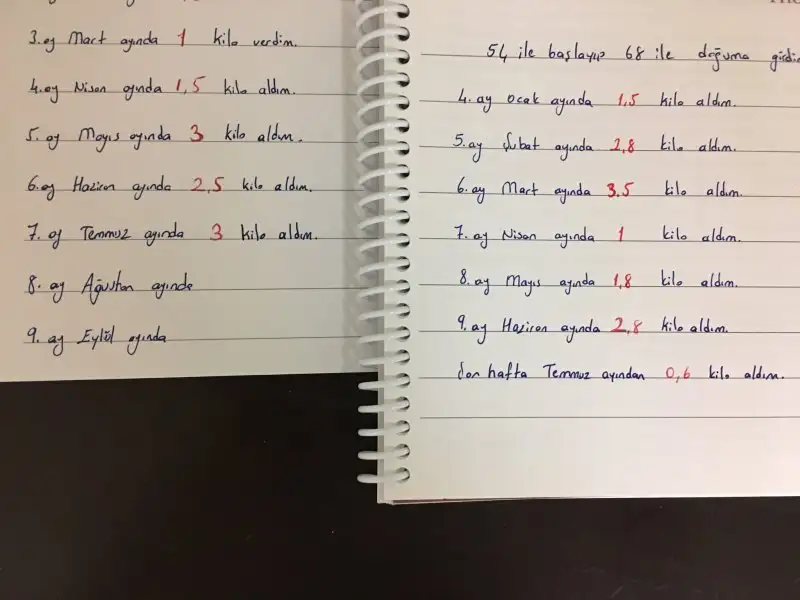 3. ay Mart ayında 1 kilo verdim.
4. ay Nisan ayında 1,5 kilo aldım.
5. ay Mayıs ayında 3 kilo aldım.
6. ay Haziran ayında 2,5 kilo aldım.
7. ay Temmuz ayında 3 kilo aldım.
8. ay Ağustan ayında
9. ay Eylül ayında
54 ile başlayıp 68 ile doğuma
4. ay Ocak ayında 1,5 kilo aldım.
5. ay Şubat ayında 2,8 kilo aldım.
6. ay Mart ayında 3.5 kilo aldım.
7. ay Nisan ayında 1 kilo aldım.
8. ay Mayıs ayında 1,8 kilo aldım.
9. ay Haziran ayında 2,8 kilo aldım.
Son hafta Temmuz ayından 0,6 kilo aldım.